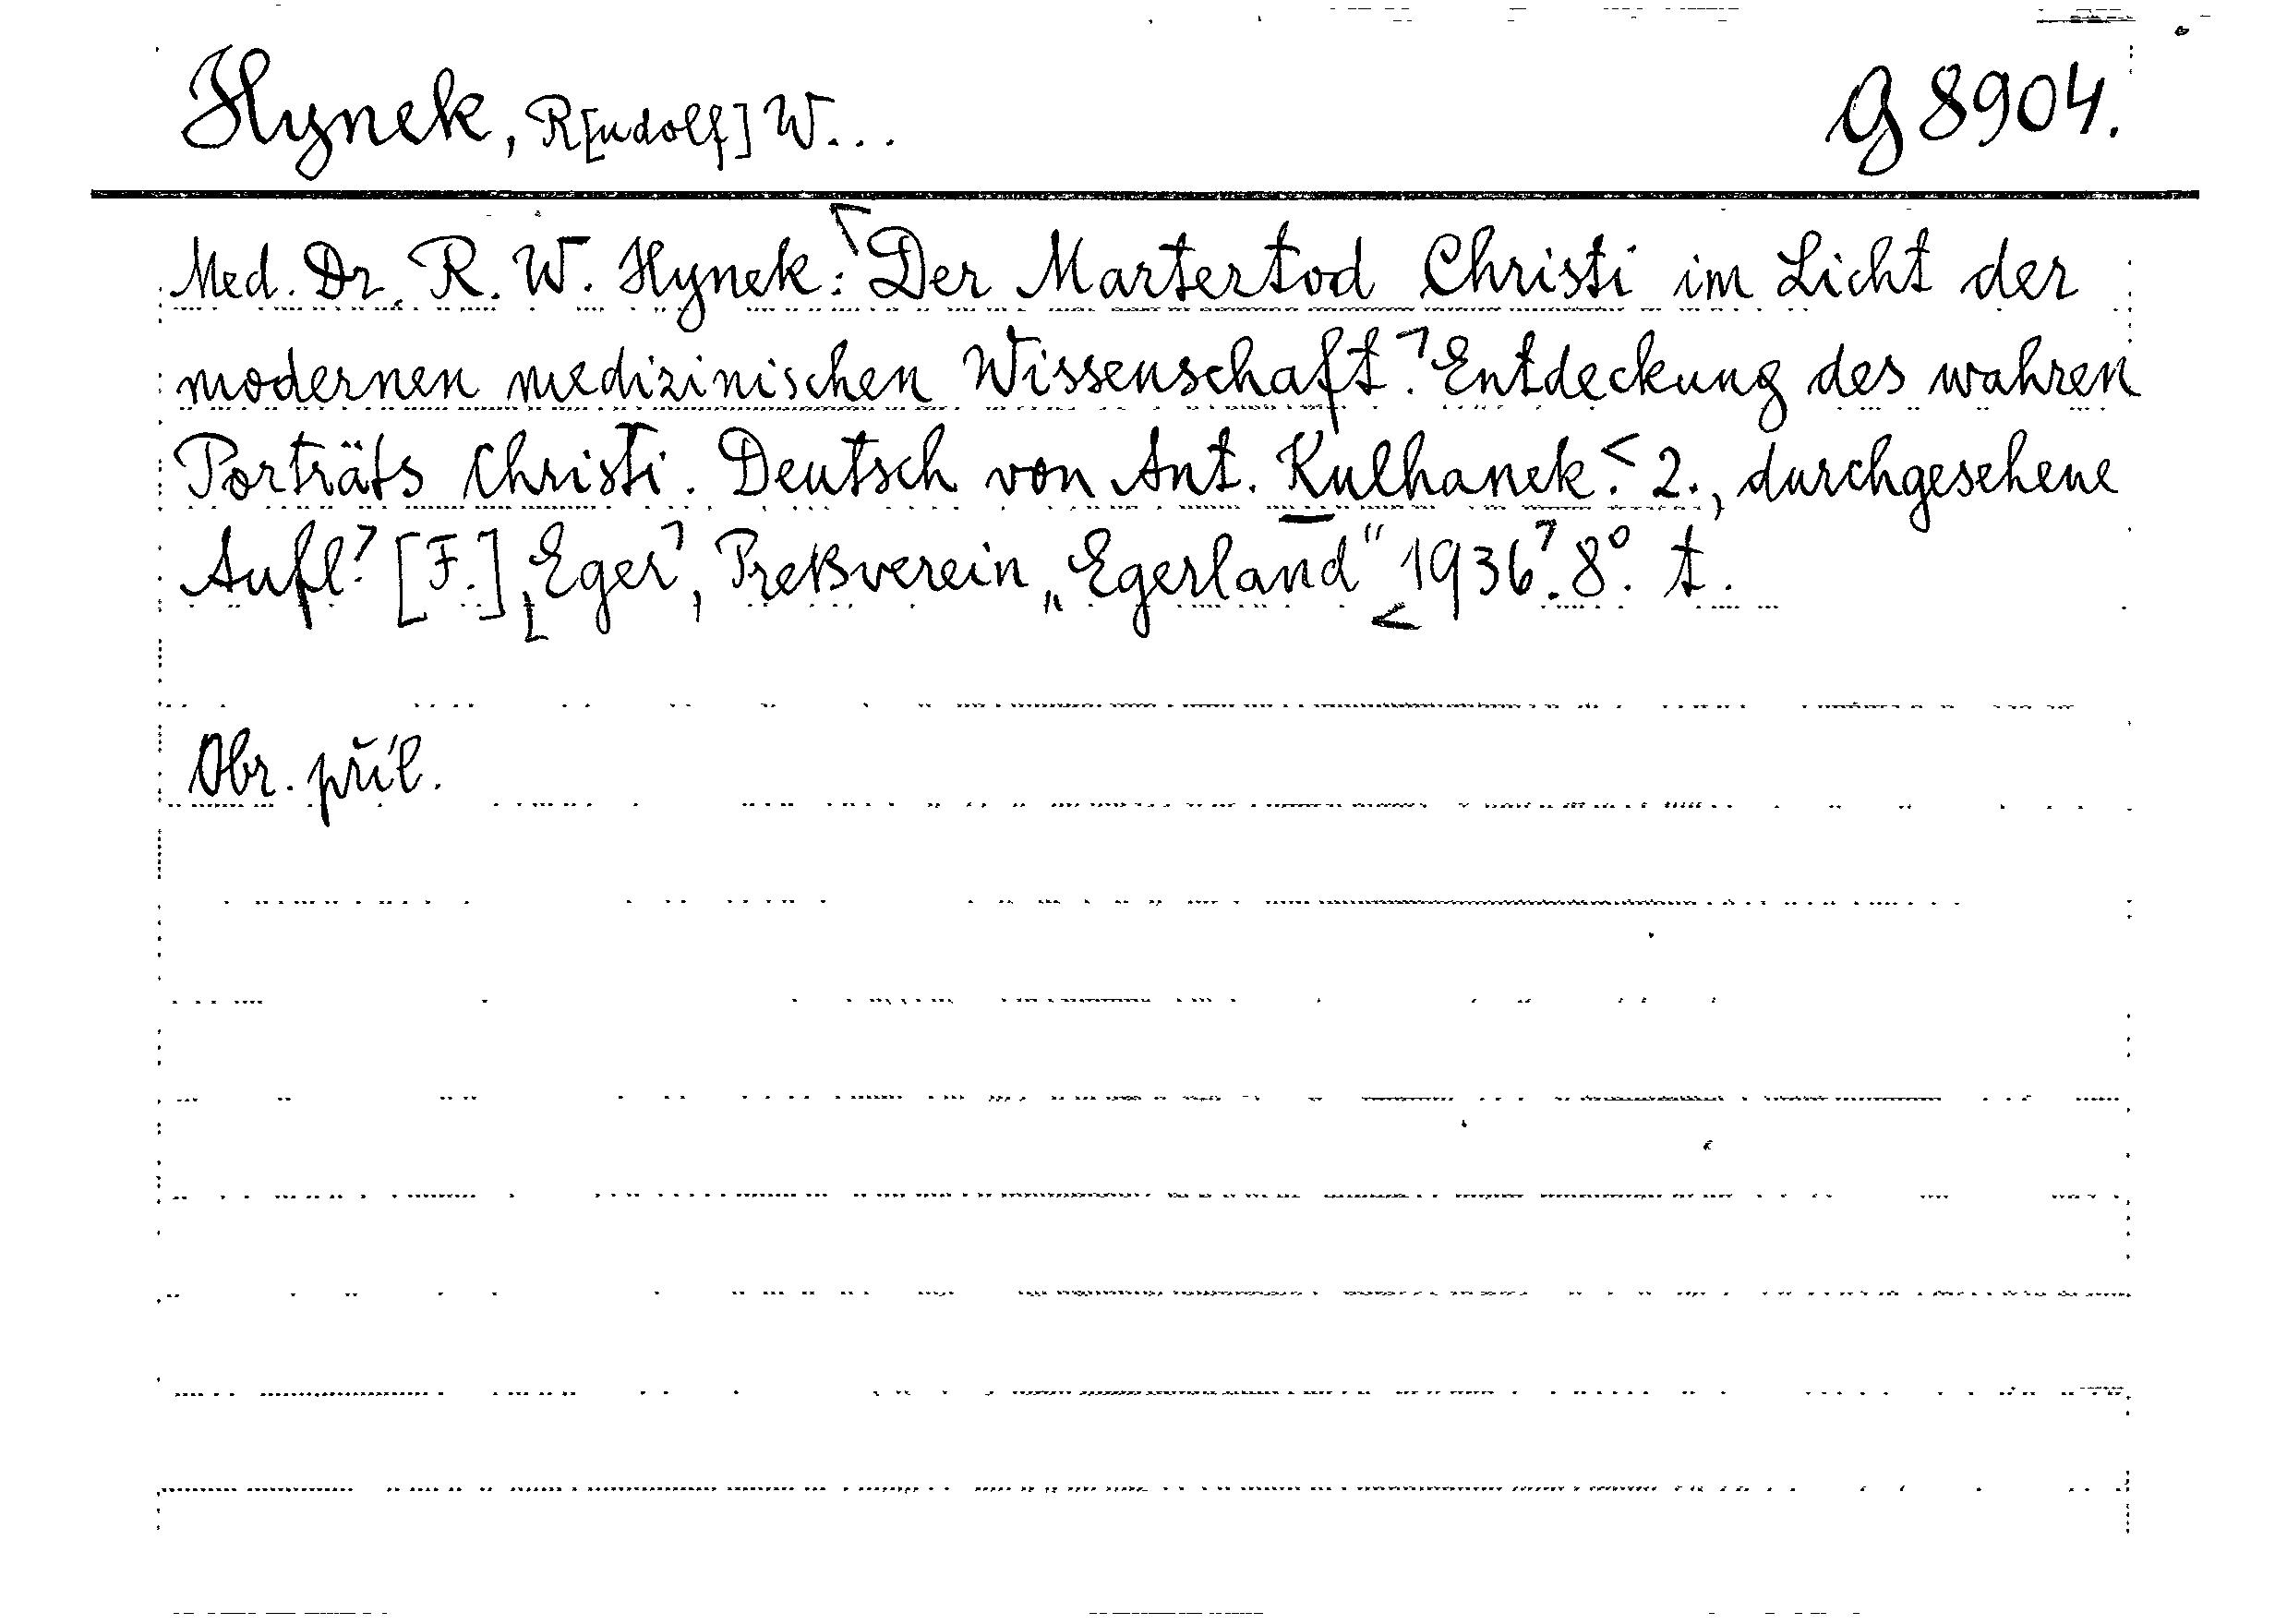 Hynek, R[udolf] W... G 8904.
Med. Dr. R. W. Hynek: Der Martertod Christi im Licht der
modernen medizinischen Wissenschaft. Entdeckung des wahren
Porträts Christi. Deutsch von Ant. Kulhanek. 2., durchgesehene
Aufl. [F.] Eger, Preßverein „Egerland" 1936. 8°. t.
Obr. příl.